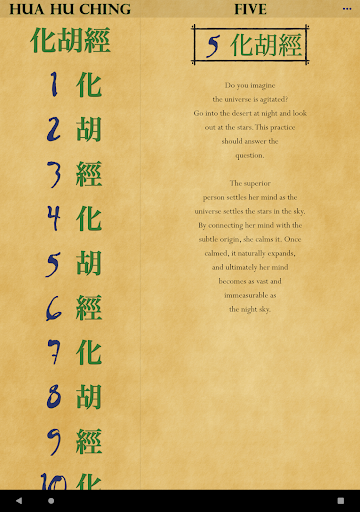 HUA HU CHING
化胡經
1 化
2 胡
3 經
4 化
5 胡
6 經
7 化
8 胡
9 經
10 化
FIVE
5 化胡經
Do you imagine
the universe is agitated?
Go into the desert at night and look
out at the stars. This practice
should answer the
question.
The superior
person settles her mind as the
universe settles the stars in the sky.
By connecting her mind with the
subtle origin, she calms it. Once
calmed, it naturally expands,
and ultimately her mind
becomes as vast and
immeasurable as
the night sky.